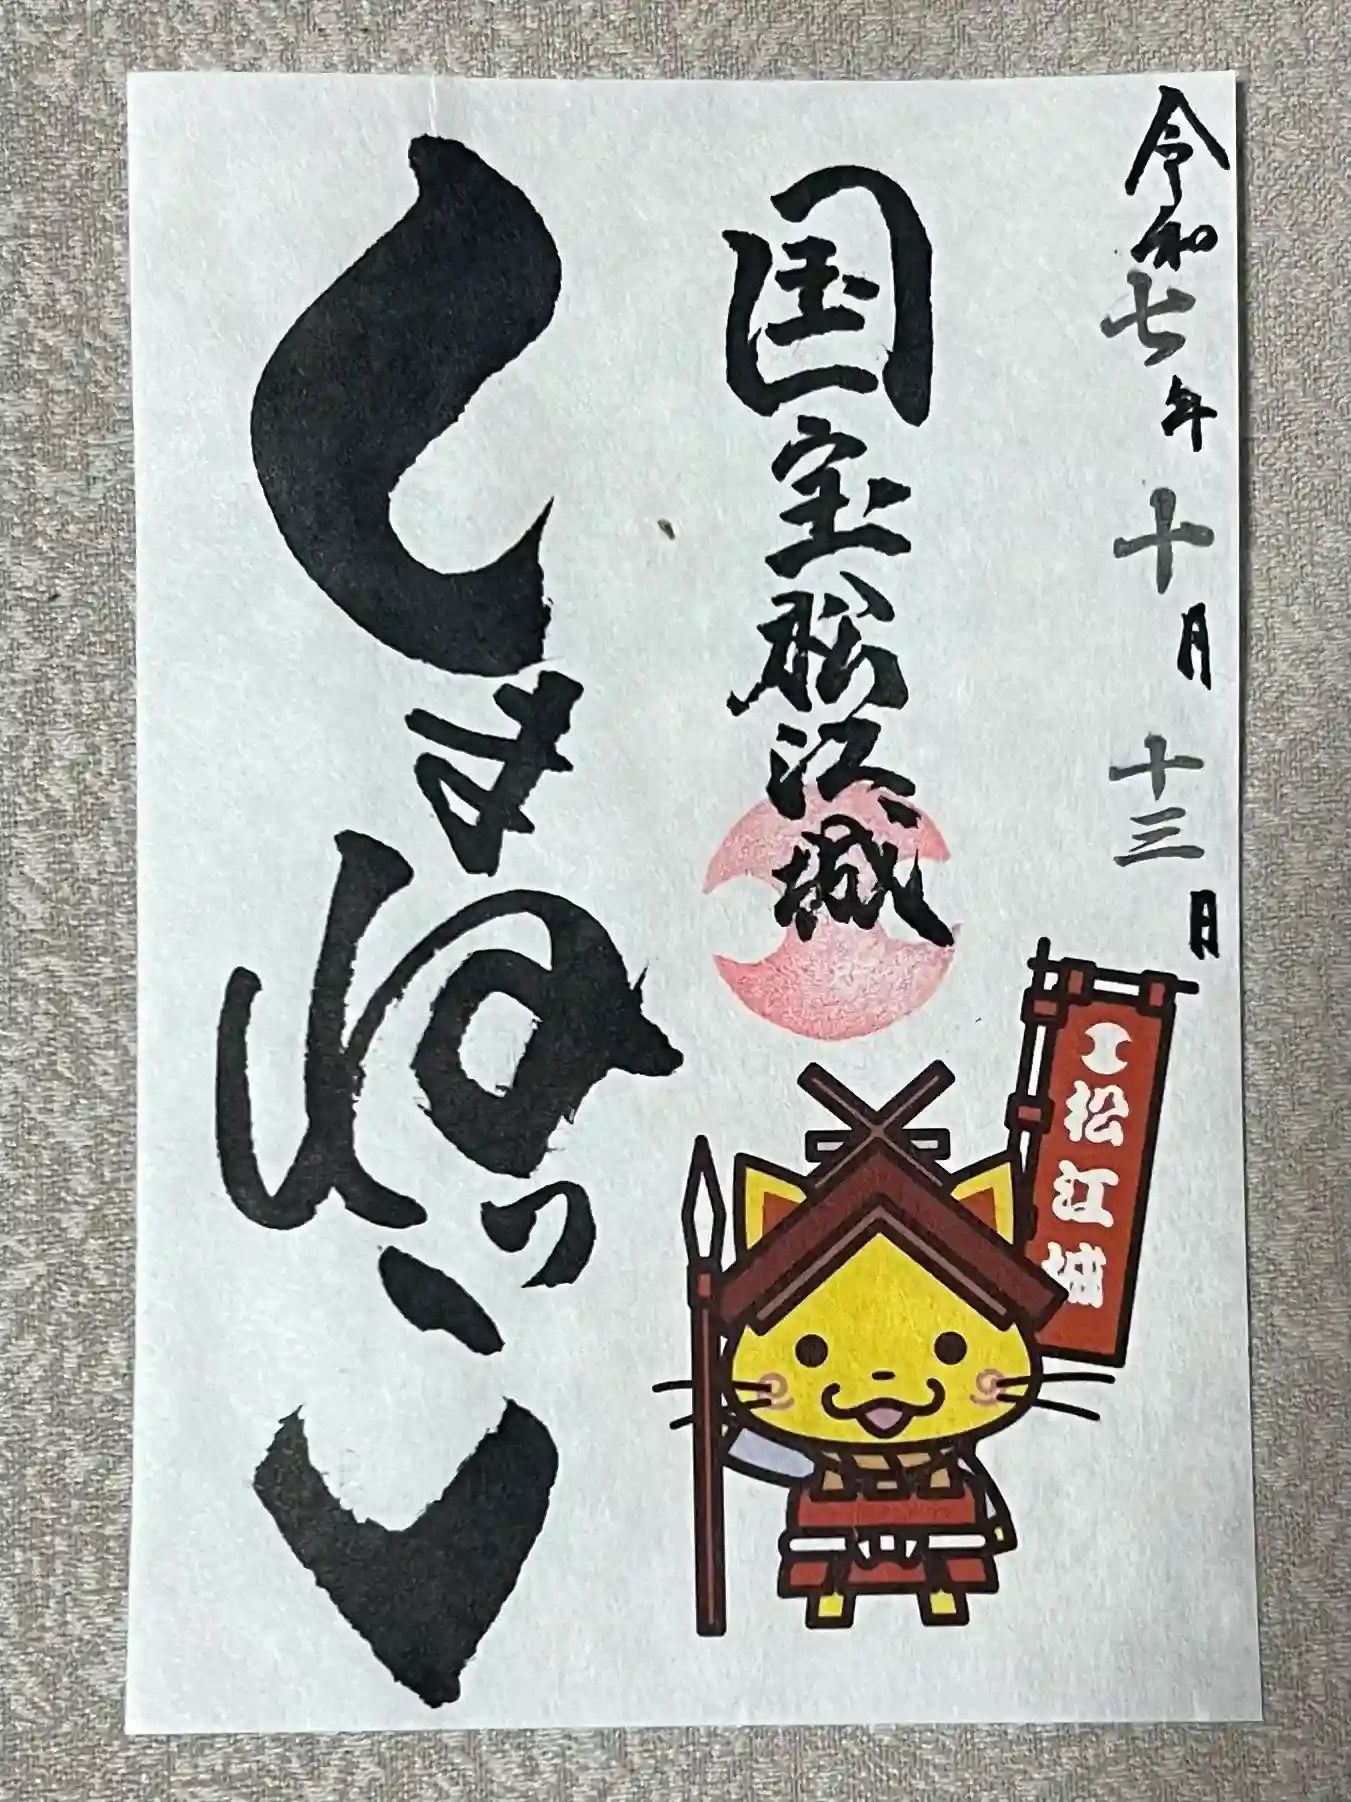 令和七年 十月 十三日
国宝松江城
しまねっこ
松江城